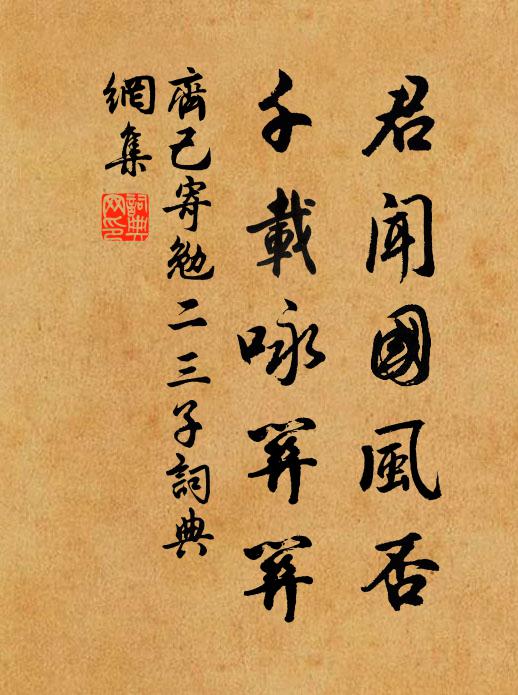 君聞國風否
千載咏關關
齊己寄勉二三子詞典
網集
詞典
网印